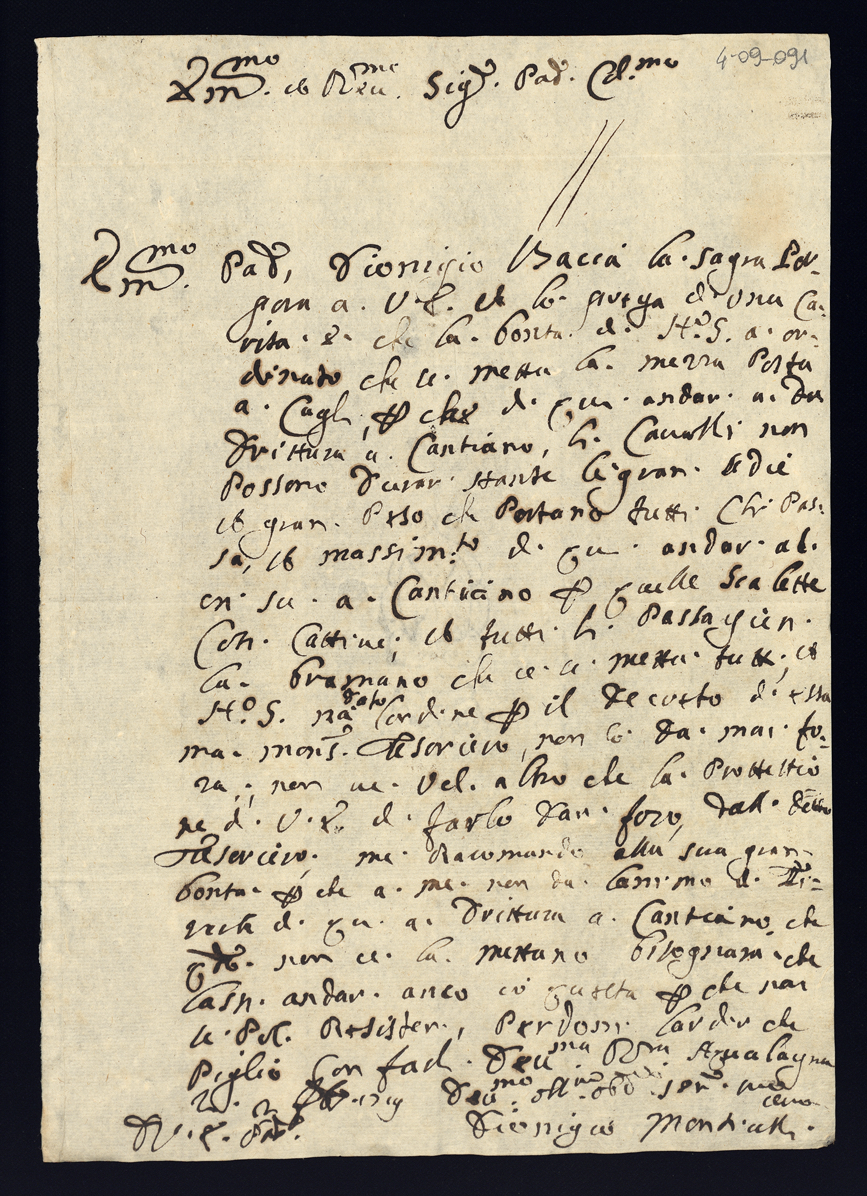 4-09-091
Em.mo et Reu.me Sig.r Pad. Col.mo
Em.mo Pad, Dionigio Bacia la sagra Por-
pora a. V.E. et lo. prega d una Ca-
rita. è. che la. bonta. di. N.ro S. a. or-
dinato che ce. metta la. mezza Posta
a. Cagli, p che di. qui. andar. a. da
drittura a. Cantiano, li. Caualli non
Possono durar. stante le gran.
et gran. Peso che Portano tutti Chi Pas-
sa, et massim.to di. qui. andar. al.
in. su. a. Canticino p quelle Scalette
Cosi. Cattiue; et tutti. li. Passagieri.
la. bramano che ce. ce. metta. tutti, et
N.ro S. n'à dato l'ordine p il decreto di essa
ma. mons. Tesoriero, non lo. da. mai. fo-
ra,; non ue. Vol. altro che la. Protettio
ne d. V.E. di farlo dar. foro, dall. detto
Tesoriero. me. racomando alla sua gran
bonta. p che a. me. non da. l'animo di.
di. qui. a. drittura a. Cantiano, che
non ce. la. mettano bisognara. che
lasci. andar. anco p che non
ce. Pol. Resister., Perdoni. l'ardir che
Piglio Con farli. deu.ma Acqualagna
li. 2 deu.mo obl.mo ser.
D.V.E. Dionigio